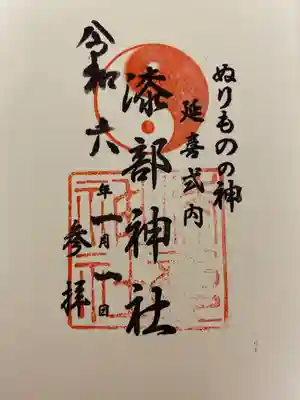 ぬりものの神
延喜式内
漆部神社
令和六年一月一日
参拝